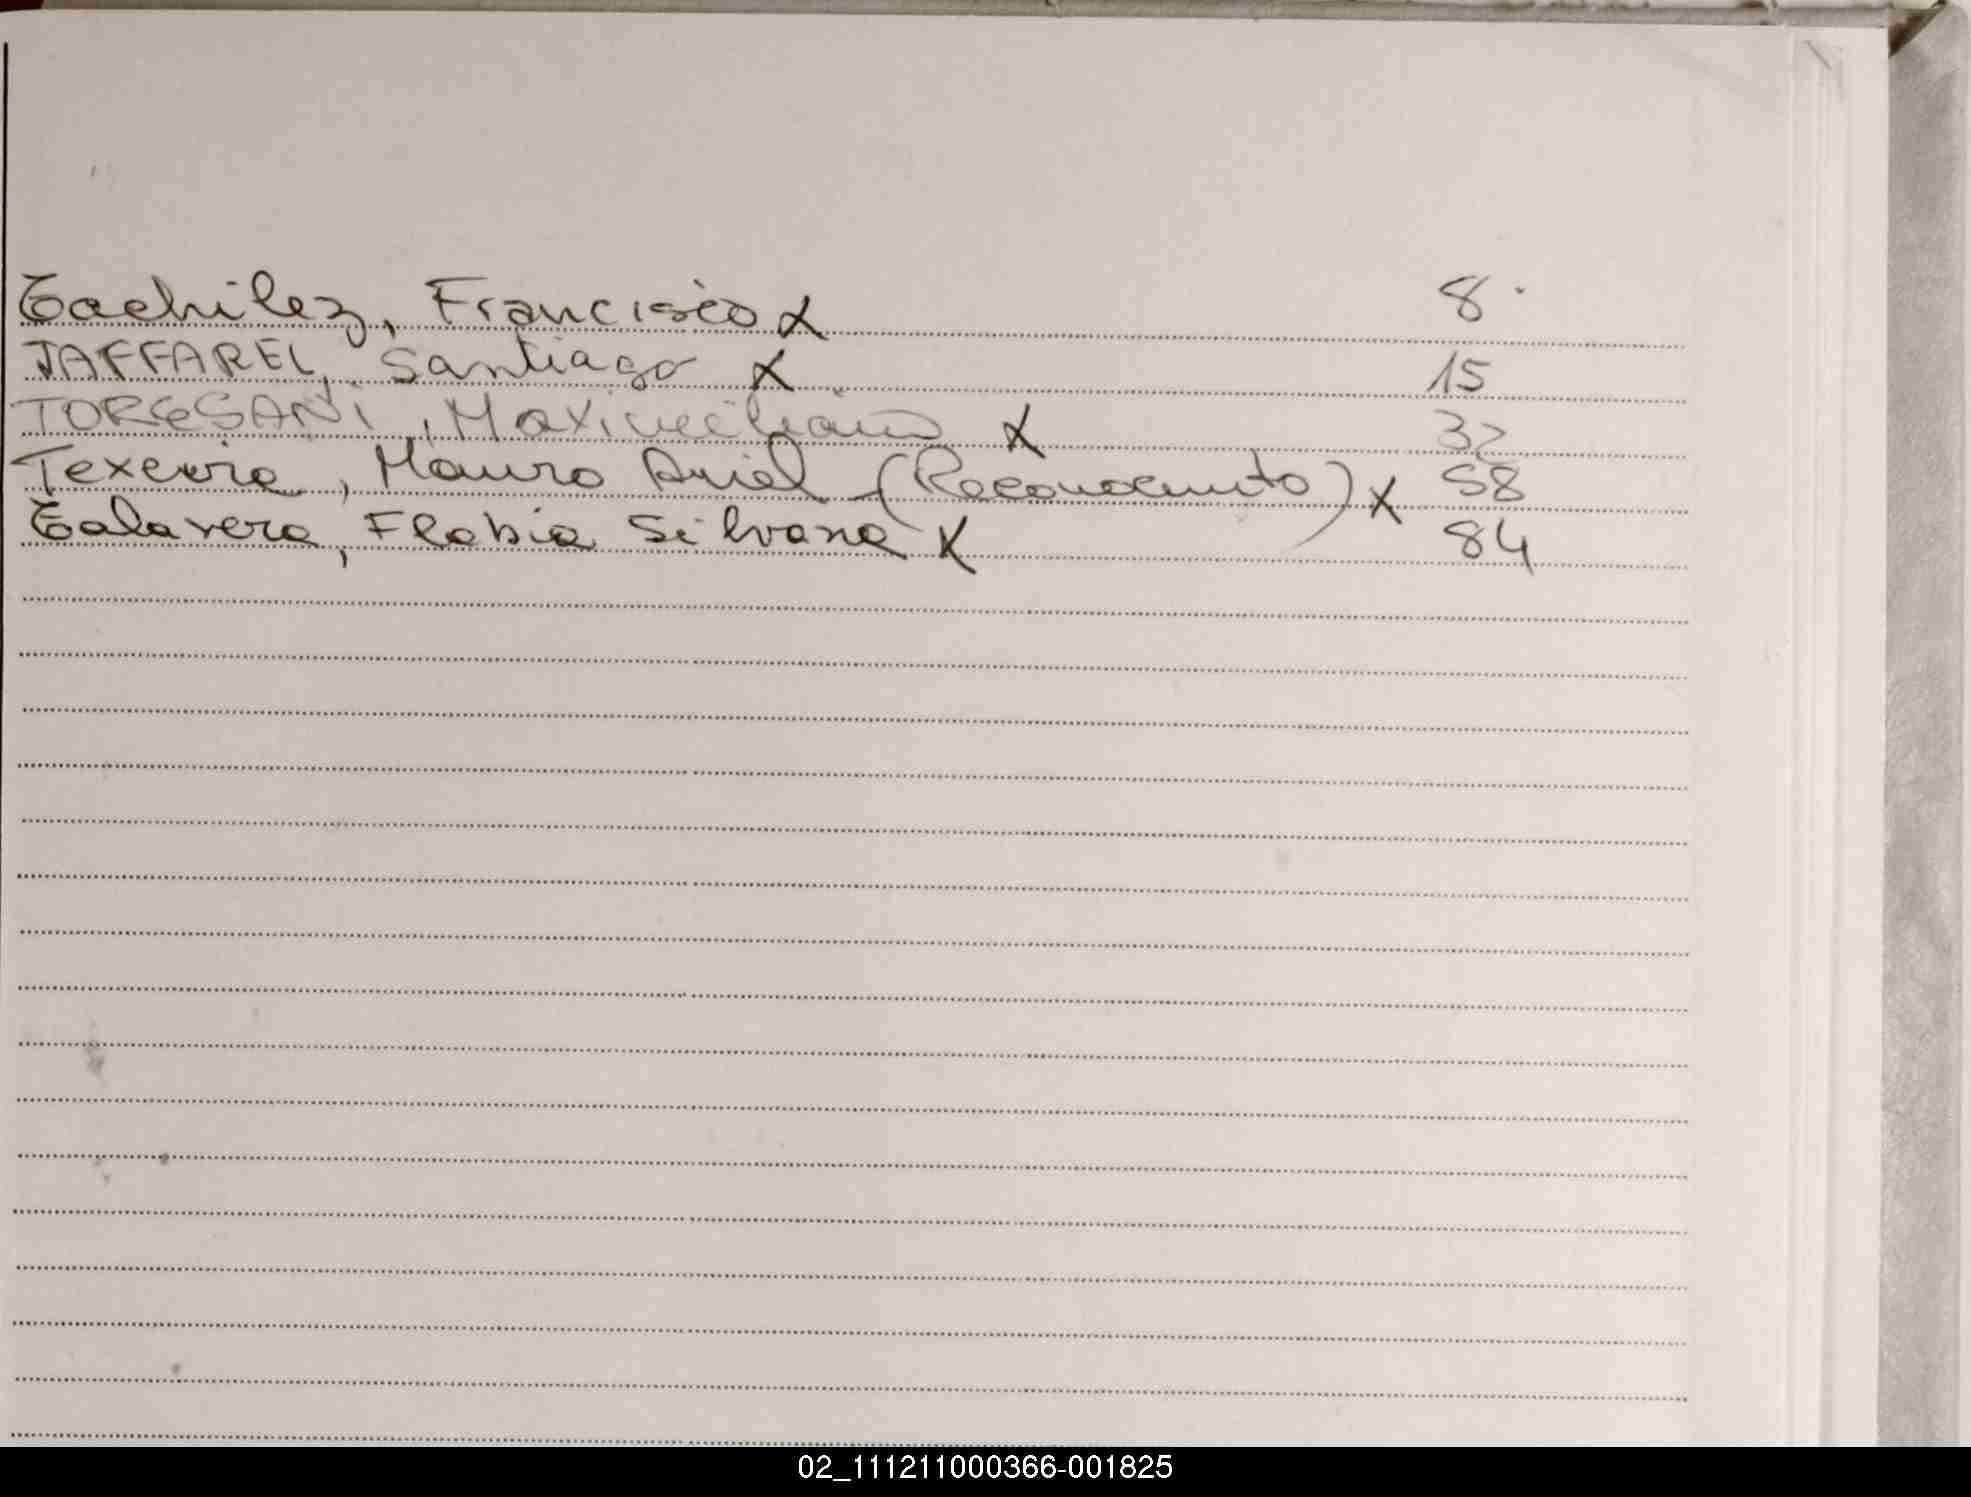 Tachilez, Francisco X 8
TAFFAREL, Santiago X 15
TORRESANI, Maximiliano X 32
Texeira, Mauro Ariel (Reconocimiento) X 58
Talavera, Flabia Silvana X 84
02_111211000366-001825